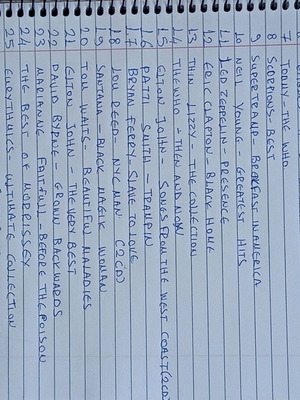 7 TOMMY - THE WHO
8 SCORPIONS - BEST
9 SUPERTRAMP - BREAKFAST IN AMERICA
10 NEIL YOUNG - GREATEST HITS
11 LED ZEPPELIN - PRESENCE
12 ERIC CLAPTON - BLACK HOME
13 THIN LIZZY - THE COLLECTION
14 THE WHO - THEN AND NOW
15 ELTON JOHN SONGS FROM THE WEST COAST (2CD)
16 PATTI SMITH - TRAMPIN
17 BRYAN FERRY - SLAVE TO LOVE
18 LOU REED - NYC MAN (2CD)
19 SANTANA - BLACK MAGIK WOMAN
20 TOM WAITS - BEAUTIFUL MALADIES
21 ELTON JOHN - THE VERY BEST
22 DAVID BYRNE - GROWN BACKWARDS
23 MARIANNE FAITFULL - BEFORE THE POISON
24 THE BEST OF MORRISSEY
25 EURYTHMICS - ULTIMATE COLLECTION